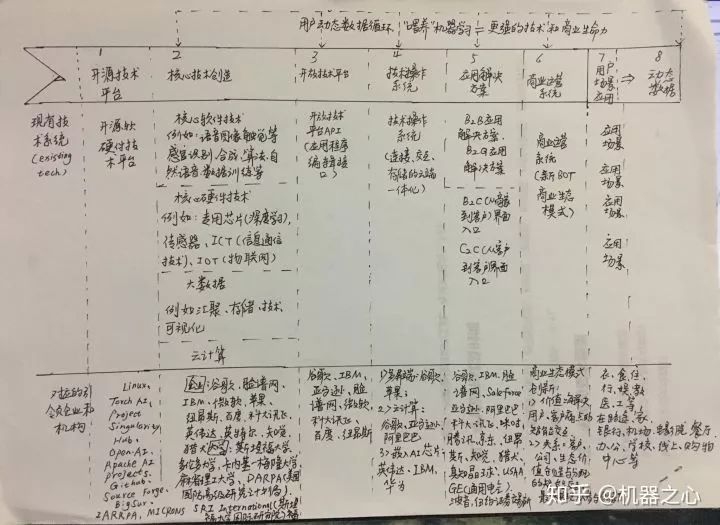 用户动态数据循环，"喂养"机器学习 = 更强的技术和商业生命力
1
开源技术
平台
2
核心技术创造
3
开放技术平台
4
技术操作
系统
5
应用解决
方案
6
商业运营
系统
7
用户
场景
应用
⇒
8
动态
数据
现有技
术系统
(existing
tech)
开源软
硬件技
术平台
核心软件技术
例如：语音图像触觉等
感官识别、合成、算法、自
然语音数据训练等
核心硬件技术
例如：专用芯片(深度学习)、
传感器、ICT(信息通信
技术)、IOT(物联网)
大数据
例如汇聚、存储、技术、
可视化
云计算
开放技术
平台API
(应用程序
编辑接
口)
技术操作
系统
(连接、交互、
存储的云端
一体化)
B2B应用
解决方案、
B2G应用
解决方案
B2C
到客户)界面
入口
客户
到客户界面
入口
商业运营
系统
(新BOT
商业生态
模式)
应用
场景
应用
场景
应用
场景
应用
场景
对应的引
领企业和
机构
Linux,
Torch AI,
Project
Singularity,
Hub.
Open-AI.
Apache AI
projects.
Github.
Source Forge.
BigSur.
IARPA, MICRONS
企业：谷歌、脸谱网、
IBM、微软、苹果、
纽昂斯、百度、科大讯飞、
英伟达、英特尔、
猎犬 斯坦福大学、
多伦多大学、卡内基-梅隆大学、
麻省理工大学、DARPA(美国
国防高级研究计划局)、
SRI International(斯坦
谷歌、IBM、
亚马逊、脸
谱网、微软、
科大讯飞、
百度、纽昂斯
谷歌、
苹果
2)云计算：
谷歌、亚马逊、
阿里巴巴
3)嵌入AI芯片：
英伟达、IBM、
华为
谷歌、IBM、脸
谱网、Saleforce
亚马逊、阿里巴巴
科大讯飞、
腾讯、京东、纽昂
斯、知晓、猎犬、
USAA
GE(通用电气)、
商业生态模式
包括：
1)价值：
用户、客户
2)关系：客户、
公司、生态
衣、食、住、
行、娱、教、
医、工等，
银行、机场、 餐厅
办公、学校、线上、购物
中心等
知乎 @机器之心